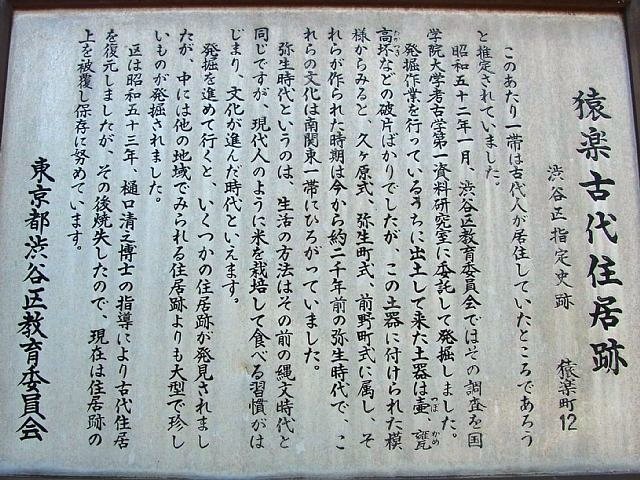 猿楽古代住居跡
渋谷区指定史跡
猿楽町12
このあたり一帯は古代人が居住していたところであろう
と推定されていました。
昭和五十二年一月、渋谷区教育委員会ではその調査を国
学院大学考古学第一資料研究室に委託して発掘しました。
発掘作業を行っているうちに出土して来た土器は壷、甕
高坏などの破片ばかりでしたが、この土器に付けられた模
様からみると、久ヶ原式、弥生町式、前野町式に属し、そ
れらが作られた時期は今から約二千年前の弥生時代で、こ
れらの文化は南関東一帯にひろがっていました。
弥生時代というのは、生活の方法はその前の縄文時代と
同じですが、現代人のように米を栽培して食べる習慣がは
じまり、文化が進んだ時代といえます。
発掘を進めて行くと、いくつかの住居跡が発見されまし
たが、中には他の地域でみられる住居跡よりも大型で珍し
いものが発掘されました。
区は昭和五十三年、樋口清之博士の指導により古代住居
を復元しましたが、その後焼失したので、現在は住居跡の
上を被覆し保存に努めています。
東京都渋谷区教育委員会